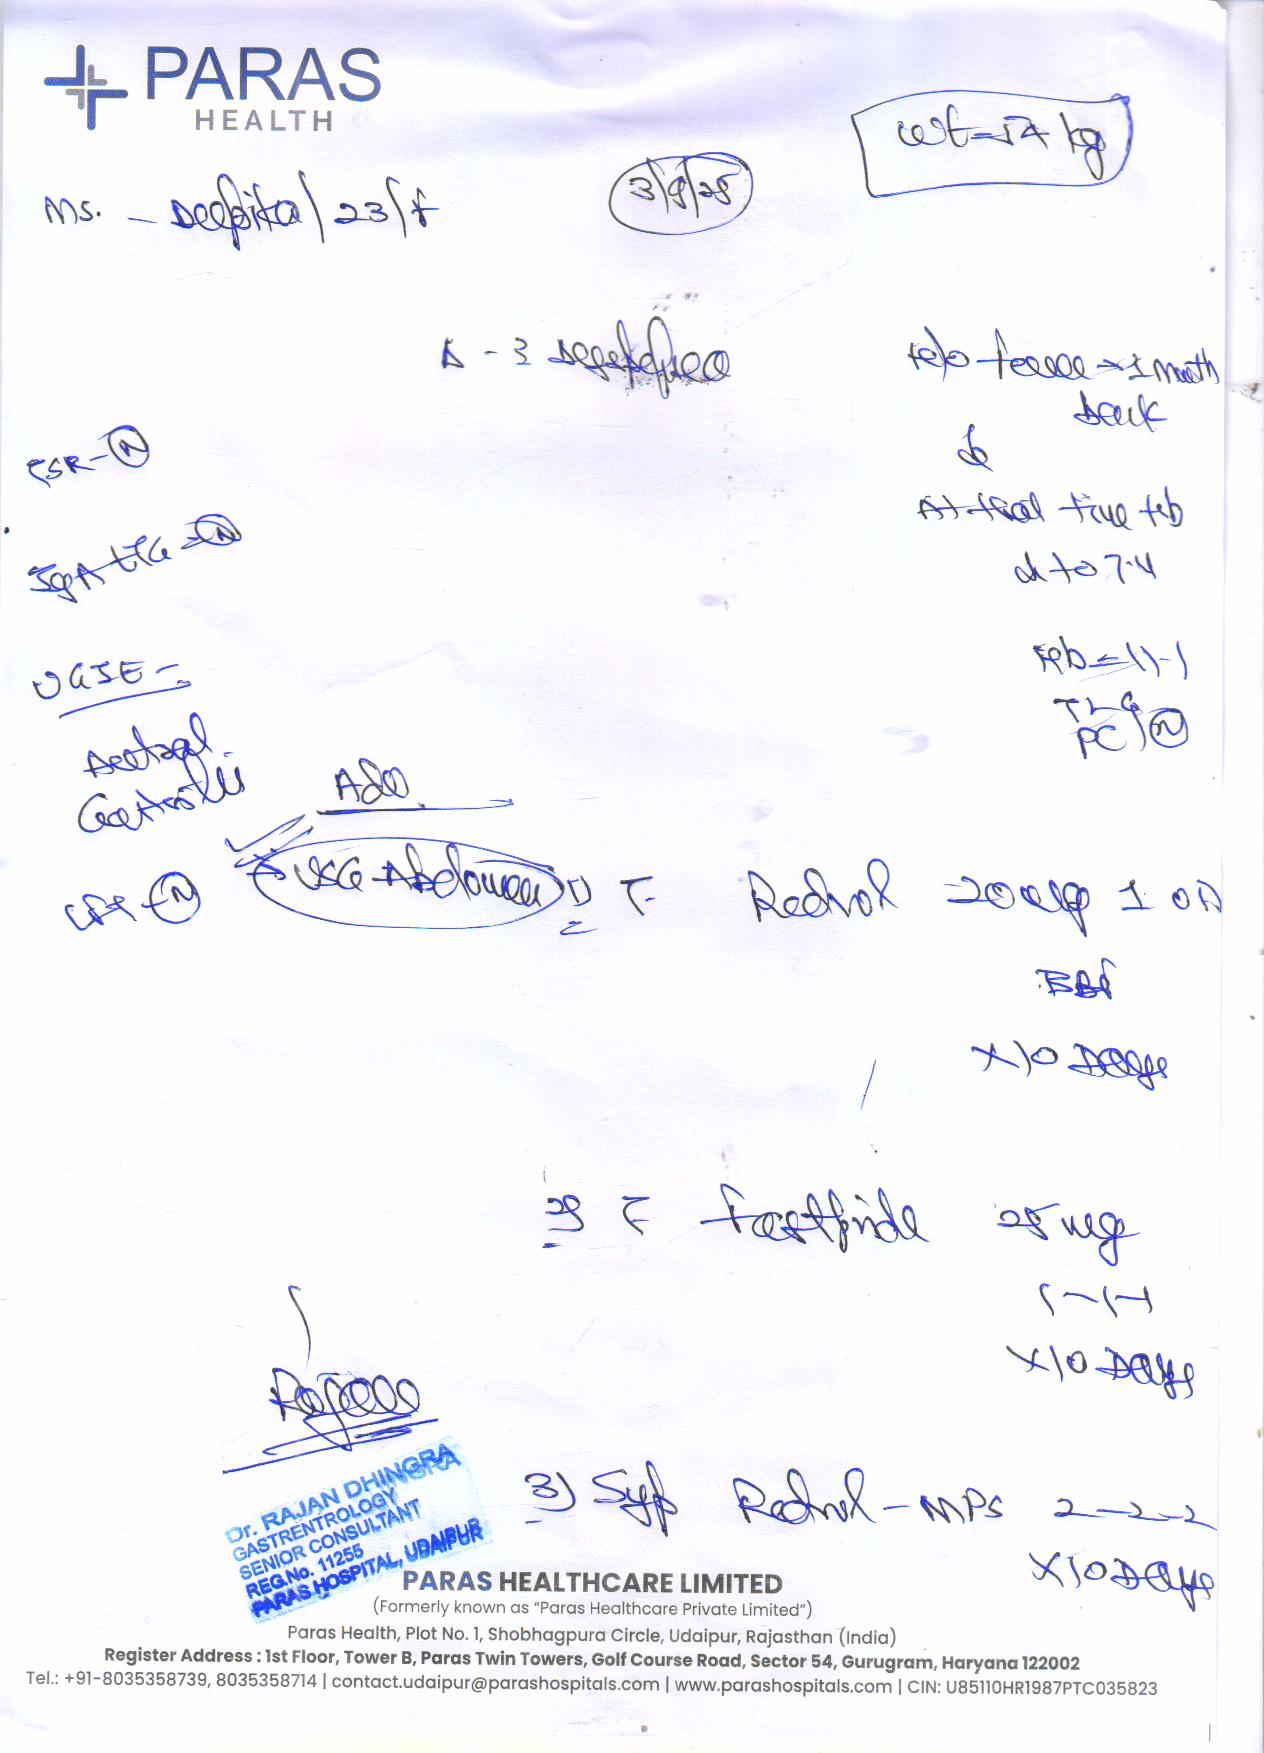 PARAS
HEALTH
wt = 54 kg
3/9/25
Ms. - Deepika / 23 / F
H/o fever → 1 Month
back
ESR - N
At that time Hb
IgA tTG - N
to 7.4
UGIE -
Hb = 11.1
TLC
PC N
Antral
Gastritis
Adv
USG Abdomen
LFT - N
1) T. 20mg 1 OD
BBF
x 10 Days
2) T. 25 mg
1-1-1
x 10 Days
3) Syp - MPS 2-2-2
x 10 Days
Dr. RAJAN DHINGRA
GASTRENTROLOGY
SENIOR CONSULTANT
REG.No. 11255
PARAS HOSPITAL, UDAIPUR
PARAS HEALTHCARE LIMITED
(Formerly known as “Paras Healthcare Private Limited”)
Paras Health, Plot No. 1, Shobhagpura Circle, Udaipur, Rajasthan (India)
Register Address : 1st Floor, Tower B, Paras Twin Towers, Golf Course Road, Sector 54, Gurugram, Haryana 122002
Tel.: +91-8035358739, 8035358714 | contact.udaipur@parashospitals.com | www.parashospitals.com | CIN: U85110HR1987PTC035823